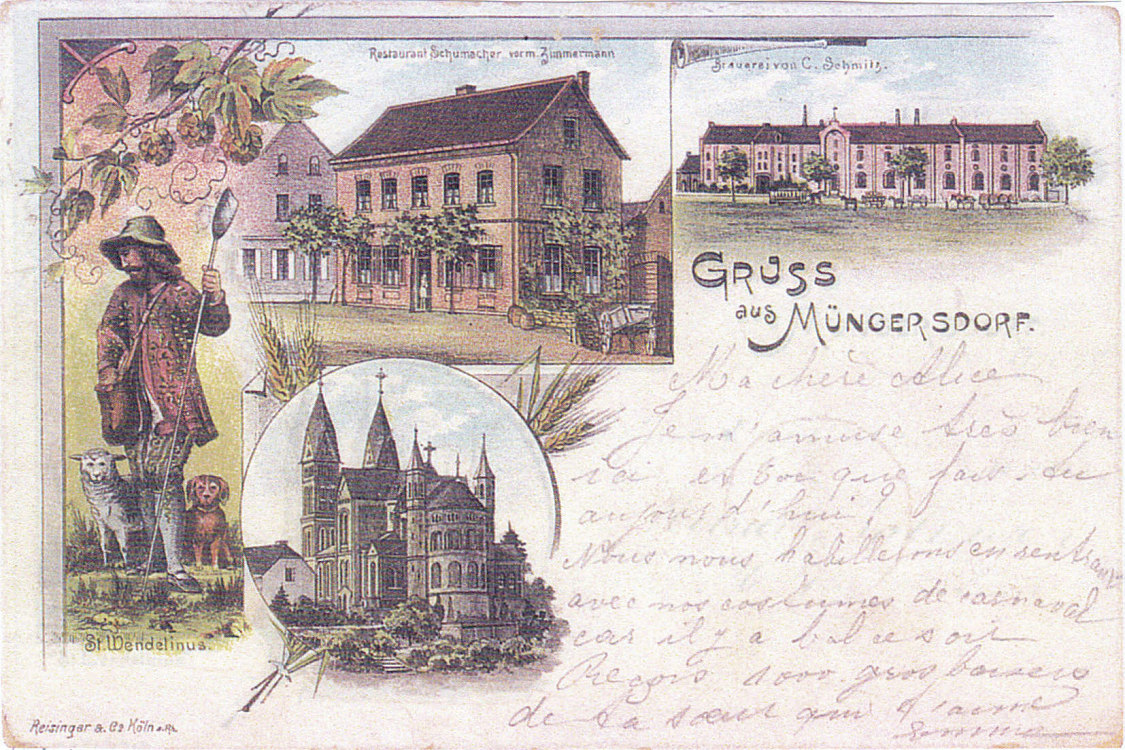 Restaurant Schumacher vorm. Zimmermann
Brauerei von C. Schmitz.
GRUSS
aus MÜNGERSDORF.
Ma chère Alice
Je m'amuse très bien
ici et toi que fais-tu
aujourd'hui?
Nous nous habillerons en rentrant
avec nos costumes de carnaval
car il y a bal ce soir
Reçois 1000 gros baisers
de ta sœur qui t'aime
Emma
St. Wendelinus.
Reisinger & Co Köln a. Rh.